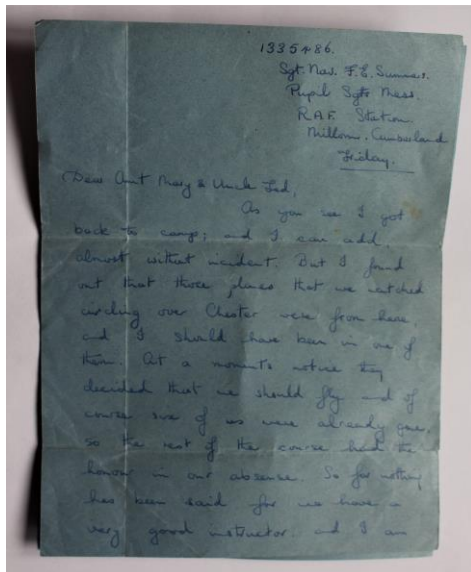 1335486.
Sgt. Nav. F. E. Summers.
Pupil Sgts Mess.
R.A.F. Station.
Millom. Cumberland
Friday.
Dear Aunt Mary & Uncle Ted,
As you see I got
back to camp; and I can add,
almost without incident. But I found
out that those planes that we watched
circling over Chester were from here,
and I should have been in one of
them. At a moments notice they
decided that we should fly and of
course five of us were already gone,
so the rest of the course had the
honour in our absense. So far nothing
has been said for we have a
very good instructor. and I am